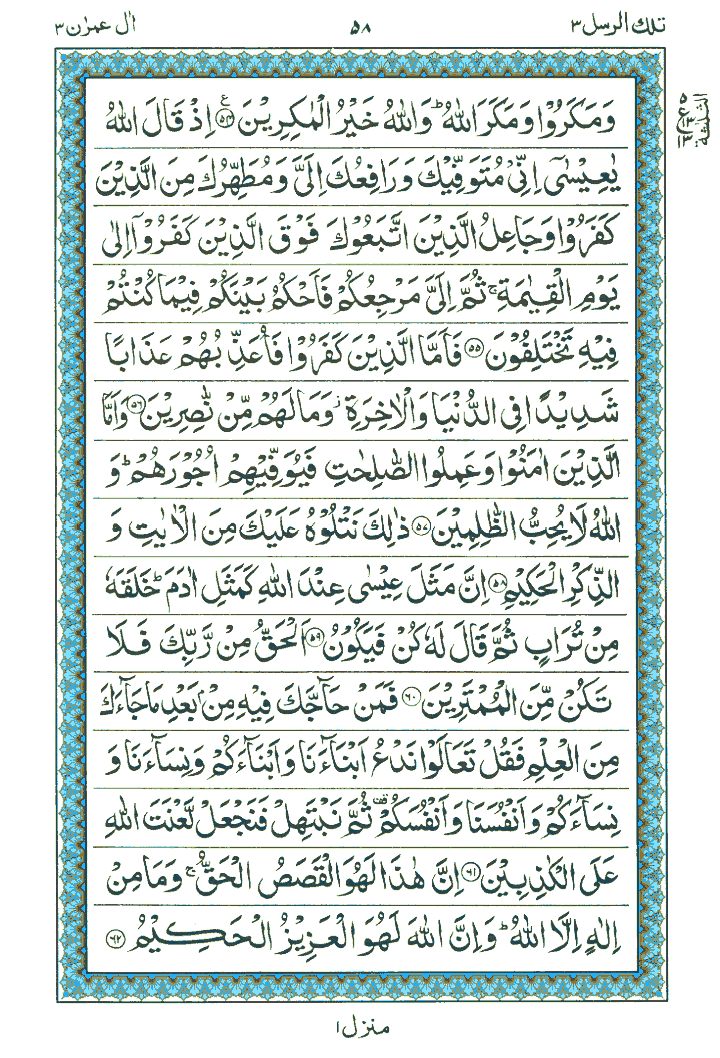 تلك الرسل ٣ ۵۸ اٰل عمرٰن ٣
وَمَكَرُوْا وَمَكَرَ اللّٰهُ ؕ وَاللّٰهُ خَيْرُ الْمٰكِرِيْنَ ﴿۵۴﴾ ع اِذْ قَالَ اللّٰهُ
يٰعِيْسٰٓى اِنِّىْ مُتَوَفِّيْكَ وَرَافِعُكَ اِلَىَّ وَمُطَهِّرُكَ مِنَ الَّذِيْنَ
كَفَرُوْا وَجَاعِلُ الَّذِيْنَ اتَّبَعُوْكَ فَوْقَ الَّذِيْنَ كَفَرُوْۤا اِلٰى
يَوْمِ الْقِيٰمَةِ ۚ ثُمَّ اِلَىَّ مَرْجِعُكُمْ فَاَحْكُمُ بَيْنَكُمْ فِيْمَا كُنْتُمْ
فِيْهِ تَخْتَلِفُوْنَ ﴿۵۵﴾ فَاَمَّا الَّذِيْنَ كَفَرُوْا فَاُعَذِّبُهُمْ عَذَابًا
شَدِيْدًا فِى الدُّنْيَا وَالْاٰخِرَةِ ؗ وَمَا لَهُمْ مِّنْ نّٰصِرِيْنَ ﴿۵۶﴾ وَاَمَّا
الَّذِيْنَ اٰمَنُوْا وَعَمِلُوا الصّٰلِحٰتِ فَيُوَفِّيْهِمْ اُجُوْرَهُمْ ؕ وَ
اللّٰهُ لَا يُحِبُّ الظّٰلِمِيْنَ ﴿۵۷﴾ ذٰلِكَ نَتْلُوْهُ عَلَيْكَ مِنَ الْاٰيٰتِ وَ
الذِّكْرِ الْحَكِيْمِ ﴿۵۸﴾ اِنَّ مَثَلَ عِيْسٰى عِنْدَ اللّٰهِ كَمَثَلِ اٰدَمَ ؕ خَلَقَهٗ
مِنْ تُرَابٍ ثُمَّ قَالَ لَهٗ كُنْ فَيَكُوْنُ ﴿۵۹﴾ اَلْحَقُّ مِنْ رَّبِّكَ فَلَا
تَكُنْ مِّنَ الْمُمْتَرِيْنَ ﴿۶۰﴾ فَمَنْ حَآجَّكَ فِيْهِ مِنْۢ بَعْدِ مَا جَآءَكَ
مِنَ الْعِلْمِ فَقُلْ تَعَالَوْا نَدْعُ اَبْنَآءَنَا وَاَبْنَآءَكُمْ وَنِسَآءَنَا وَ
نِسَآءَكُمْ وَاَنْفُسَنَا وَاَنْفُسَكُمْ ۫ ثُمَّ نَبْتَهِلْ فَنَجْعَلْ لَّعْنَتَ اللّٰهِ
عَلَى الْكٰذِبِيْنَ ﴿۶۱﴾ اِنَّ هٰذَا لَهُوَ الْقَصَصُ الْحَقُّ ۚ وَمَا مِنْ
اِلٰهٍ اِلَّا اللّٰهُ ؕ وَاِنَّ اللّٰهَ لَهُوَ الْعَزِيْزُ الْحَكِيْمُ ﴿۶۲﴾
منزل ١